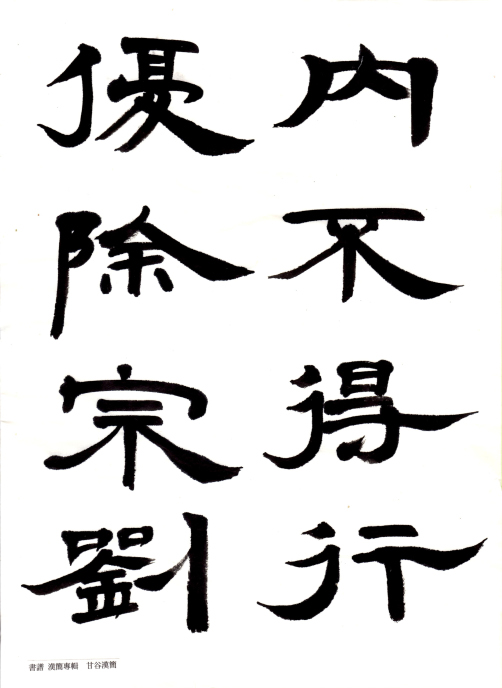 內不得行
優除宗劉
書譜 漢簡專輯 甘谷漢簡